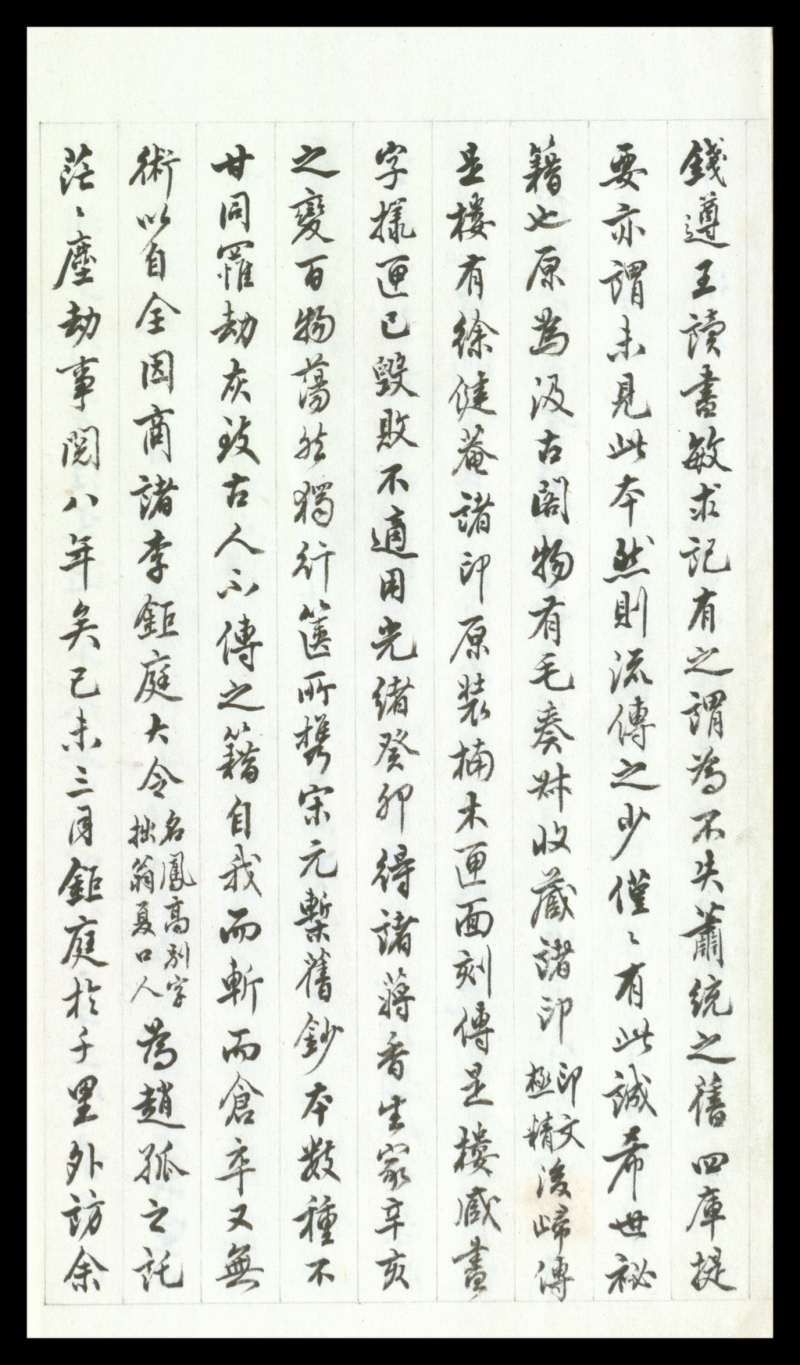 錢遵王讀書敏求記有之謂為不失蕭統之舊四庫提
要亦謂未見此本然則流傳之少僅〻有此誠希世祕
籍也原為汲古閣物有毛奏叔收藏諸印印文極精後歸傳
是樓有徐健菴諸印原裝楠木匣面刻傳是樓藏書
字樣匣已毀敗不適用光緒癸卯得諸蔣香生家辛亥
之變百物蕩然獨行篋所攜宋元槧舊鈔本數種不
甘同罹劫灰致古人不傳之籍自我而斬而倉卒又無
術以自全因商諸李鉅庭大令名鳳高別字拙翁夏口人為趙孤之託
茫〻塵劫事閱八年矣己未三月鉅庭於千里外訪余